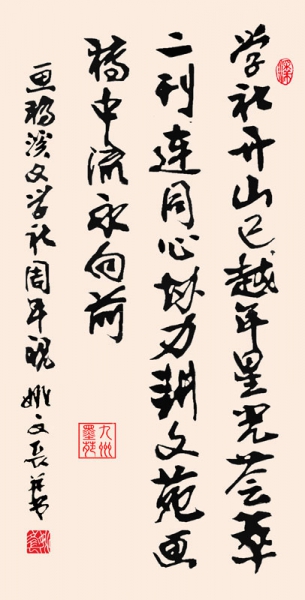 学社开山已越年星光荟萃
二刊连同心协力耕文苑画
中流永向前
画溪文学社周年 姚文长并书
九州墨苑